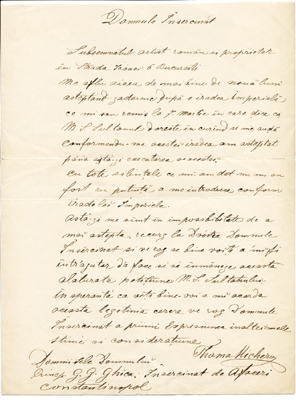 Domnule Însărcinat
Subsemnatul artist român și proprietar
în Strada Teunei 6 București
Me aflu aicea de mai bine de nouă luni
așteptând zadarnic după o iradea Imperială
ce mi sau remis la 7 Martie în care zice ca
M. S. Sultanul dorește în curînd se me vadă
conformându-me acestei iradea am așteptat
până astăzi
Cu tóte silințele ce mi au dat nu mi au
fost cu putință a me introduce conform
Iradelei Imperiale.
Astăzi me aflu în imposibilitate de a
mai aștepta, recurg la Dvóstre Domnule
Însărcinat și ve rog se bine voiți a
face se se înmâneze acesta
alăturata petițiune M. S. Sultanului
în speranță ca veți bine voi a mi acorda
aceasta legitimă cerere ve rog Domnule
Însărcinat a primi Expresiunea înaltei mele
stime și considerațiune
Domnii Sale Domnului
Prinț. G. G. Ghica, Însărcinat de Afaceri
Constantinopol